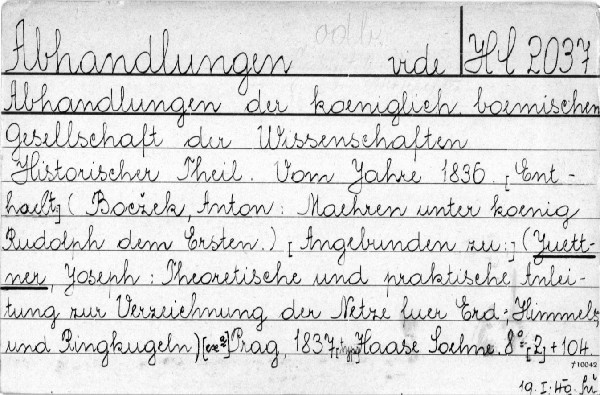 odb.
Abhandlungen vide Hl 2037
Abhandlungen der koeniglich boemischen
Gesellschaft der Wissenschaften
Historischer Theil. Vom Jahre 1836. [Ent-
haelt] ( Boczek, Anton: Maehren unter koenig
Rudolph dem Ersten.) [Angebunden zu:] (Juett-
ner, Joseph: Theoretische und praktische Anlei-
tung zur Verzeichnung der Netze fuer Erd-, Himmels,
und Ringkugeln) Prag, 1837, [typ] Haase Soehne. 8° [2] + 104.
710042
19. I. 49.